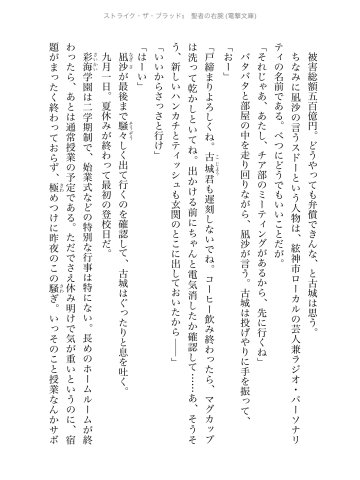 ストライク・ザ・ブラッド1　聖者の右腕 (電撃文庫)
被害総額五百億円。どうやっても弁償できんな、と古城は思う。
ちなみに凪沙の言うスドーという人物は、絃神市ローカルの芸人兼ラジオ・パーソナリ
ティの名前である。べつにどうでもいいことだが。
「それじゃあ、あたし、チア部のミーティングがあるから、先に行くね」
バタバタと部屋の中を走り回りながら、凪沙が言う。古城は投げやりに手を振って、
「おー」
「戸締まりよろしくね。古城君も遅刻しないでね。コーヒー飲み終わったら、マグカップ
は洗って乾かしといてね。出かける前にちゃんと電気消したか確認して……あ、そうそ
う、新しいハンカチとティッシュも玄関のとこに出しておいたから――」
「いいからさっさと行け」
「はーい」
凪沙が最後まで騒々しく出て行くのを確認して、古城はぐったりと息を吐く。
九月一日。夏休みが終わって最初の登校日だ。
彩海学園は二学期制で、始業式などの特別な行事は特にない。長めのホームルームが終
わったら、あとは通常授業の予定である。ただでさえ休み明けで気が重いというのに、宿
題がまったく終わっておらず、極めつけに昨夜のこの騒ぎ。いっそのこと授業なんかサボ